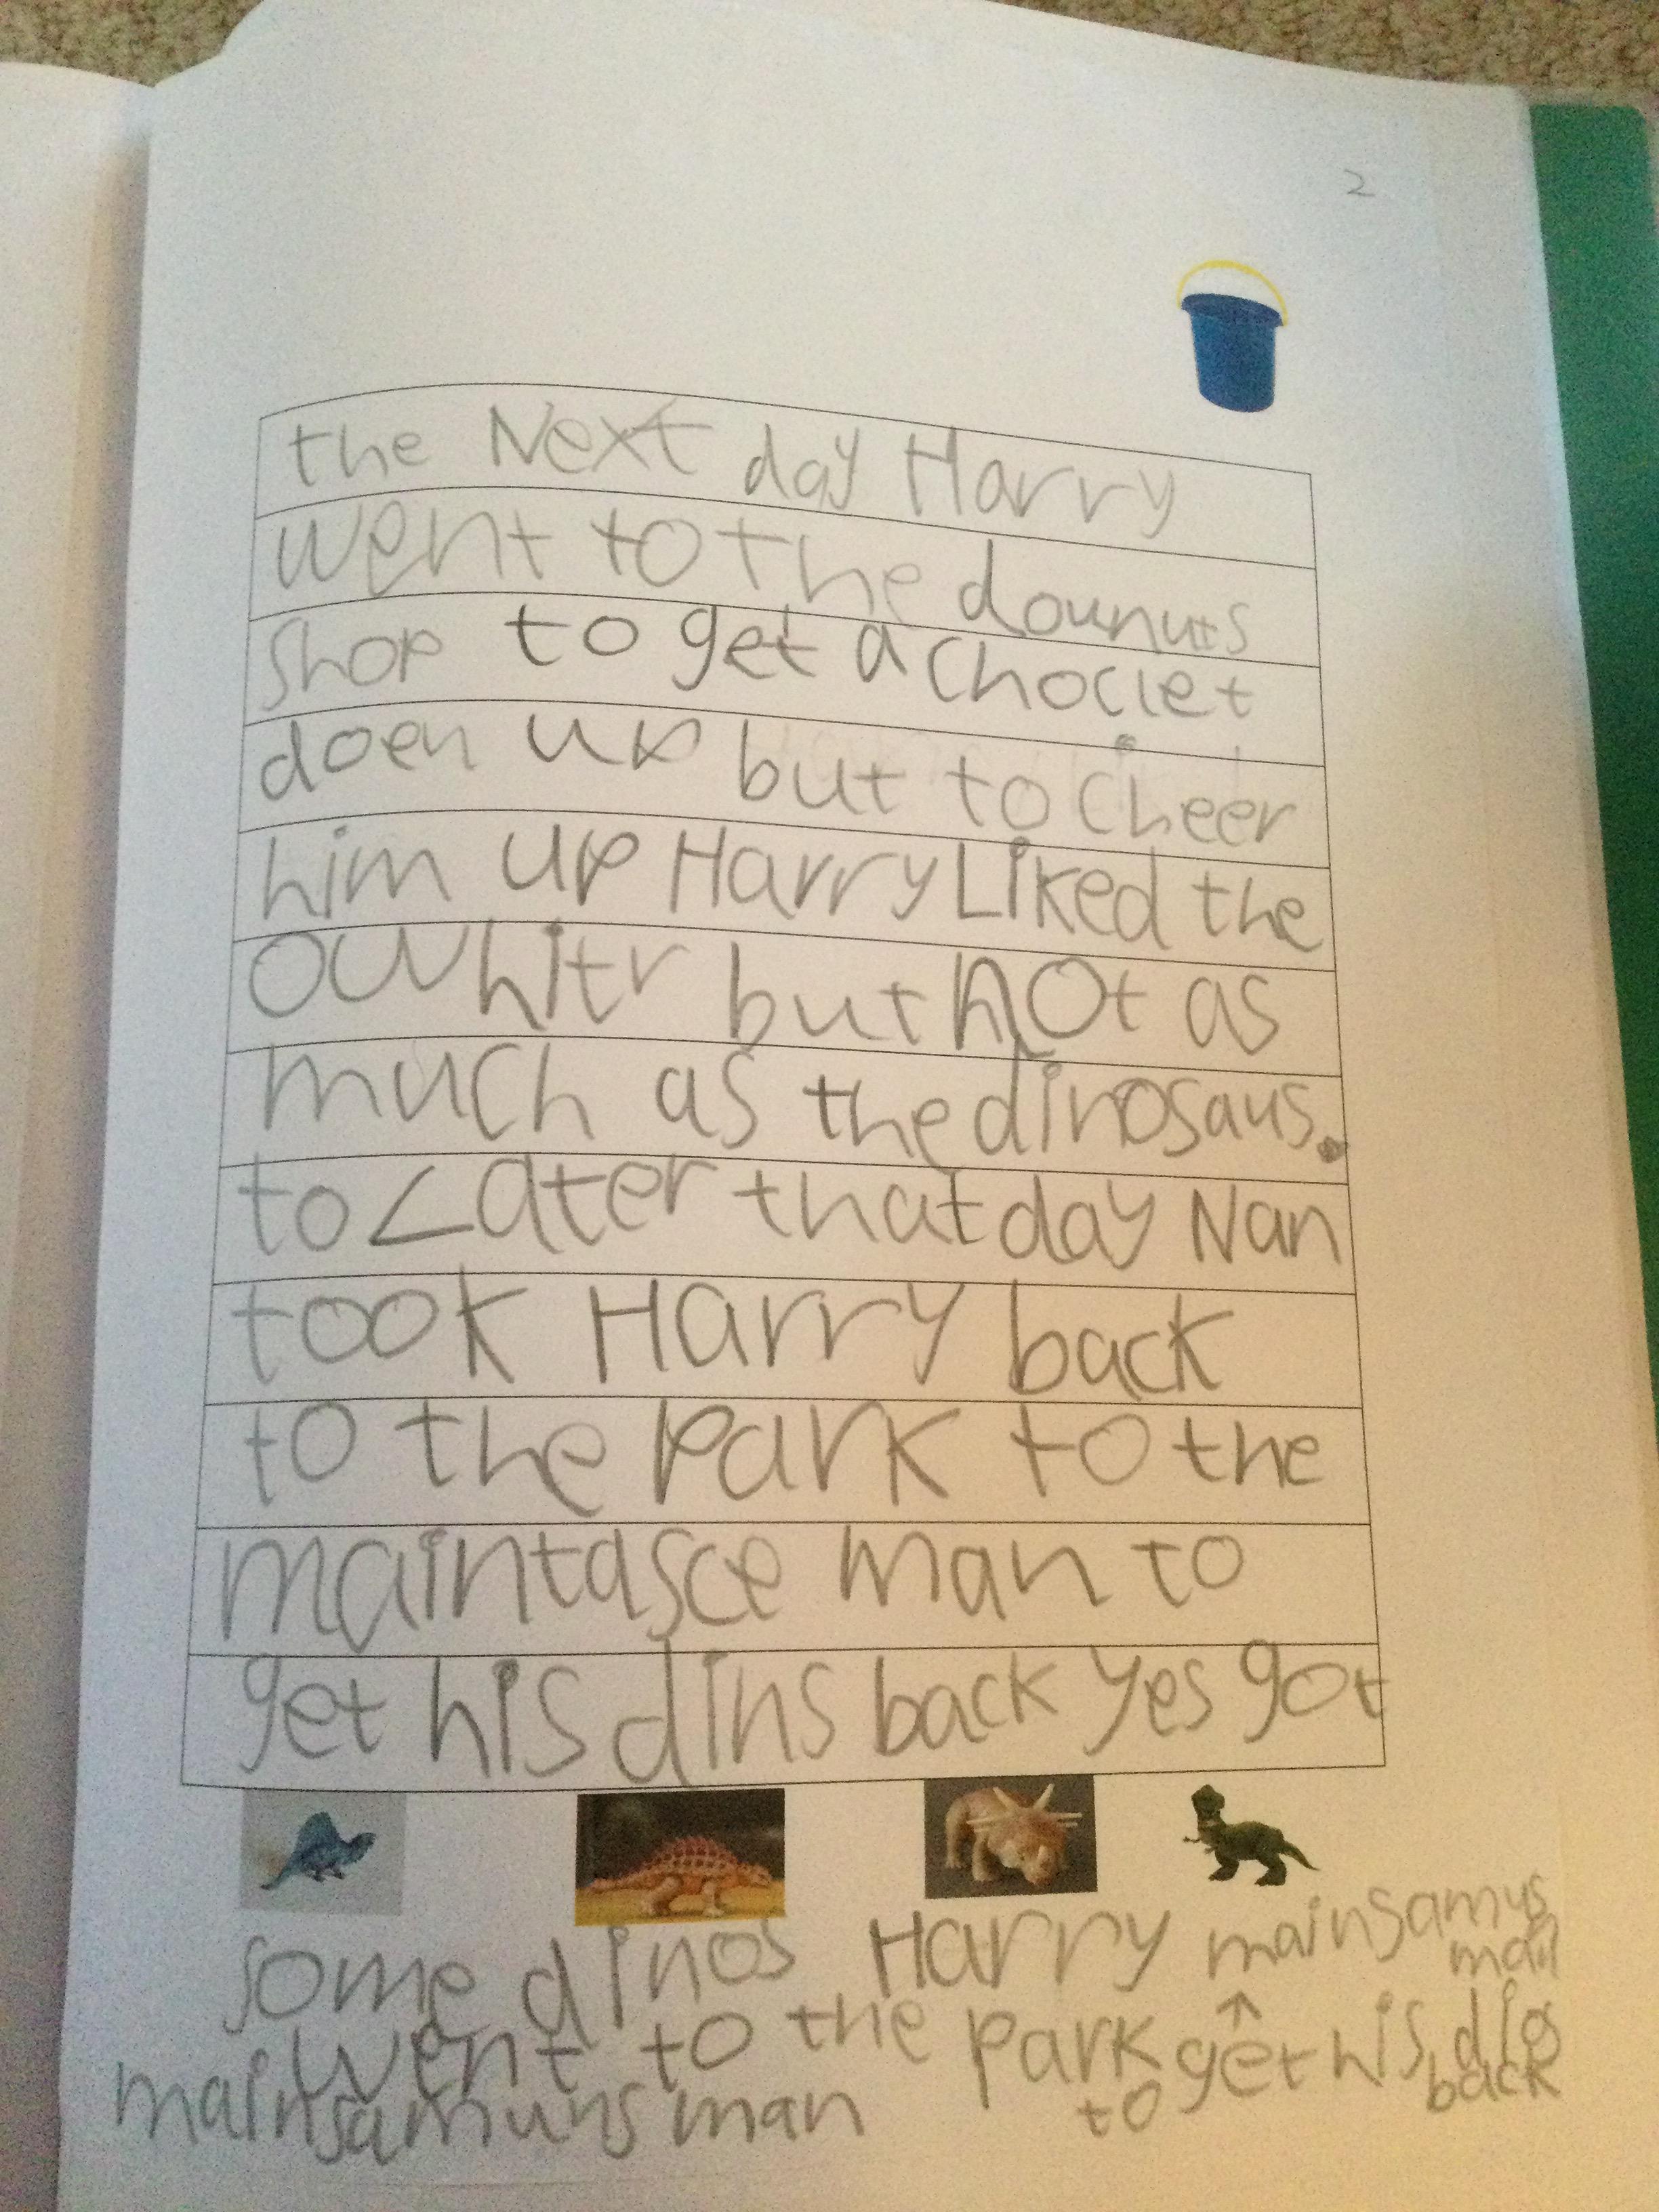 2
the Next day Harry
went to the dounuts
shop to get a choclet
doen up but to cheer
him up Harry Liked the
but not as
much as the dinosaus.
to Later that day Nan
took Harry back
to the park to the
maintasce man to
get his dins back yes got
some dinos Harry mainsamus
man
went to the park get his
back
mainsamuns man to